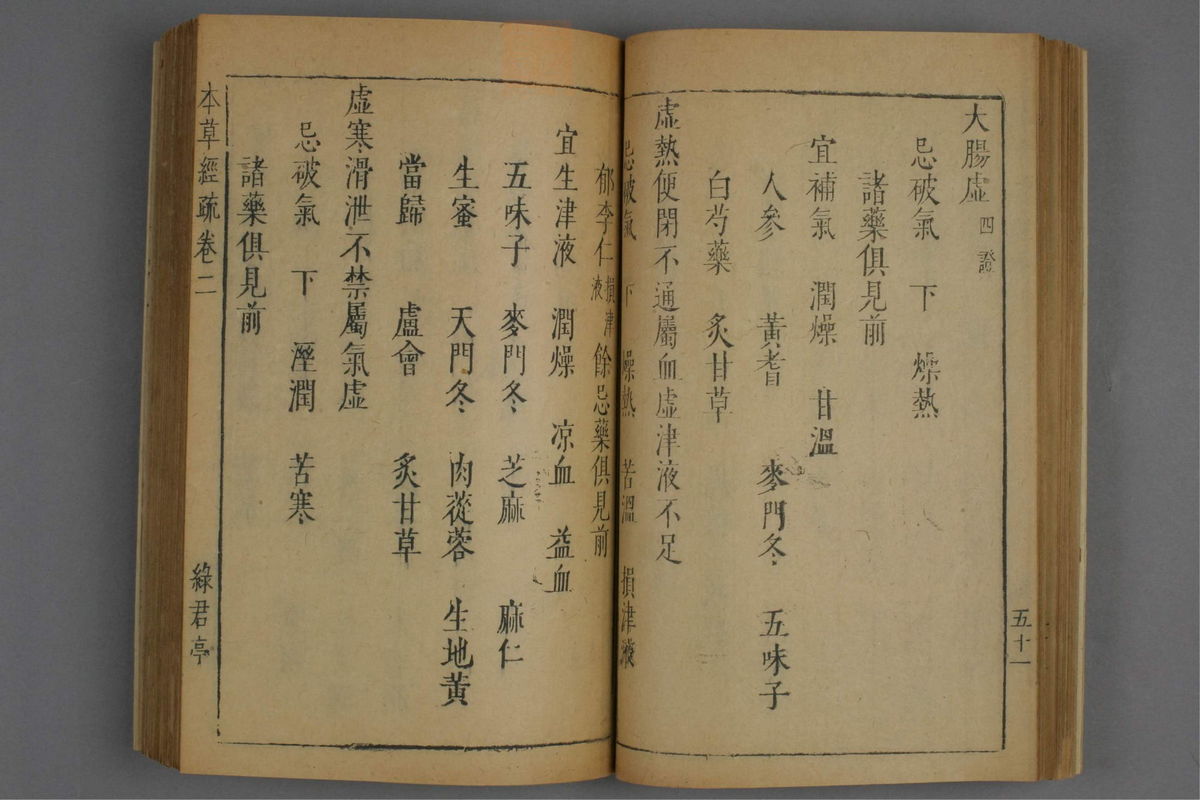 大腸虛四證
忌破氣　下　燥熱
諸藥俱見前
宜補氣　潤燥　甘溫
人參　黃耆　麥門冬　五味子
白芍藥　炙甘草
虛熱便閉不通屬血虛津液不足
忌破氣　下　燥熱　苦溫　損津液
五十一
郁李仁損津液餘忌藥俱見前
宜生津液　潤燥　凉血　益血
五味子　麥門冬　芝麻　麻仁
生蜜　天門冬　肉蓯蓉　生地黃
當歸　盧會　炙甘草
虛寒滑泄不禁屬氣虛
忌破氣　下　溼潤　苦寒
諸藥俱見前
本草經疏卷二　綠君亭